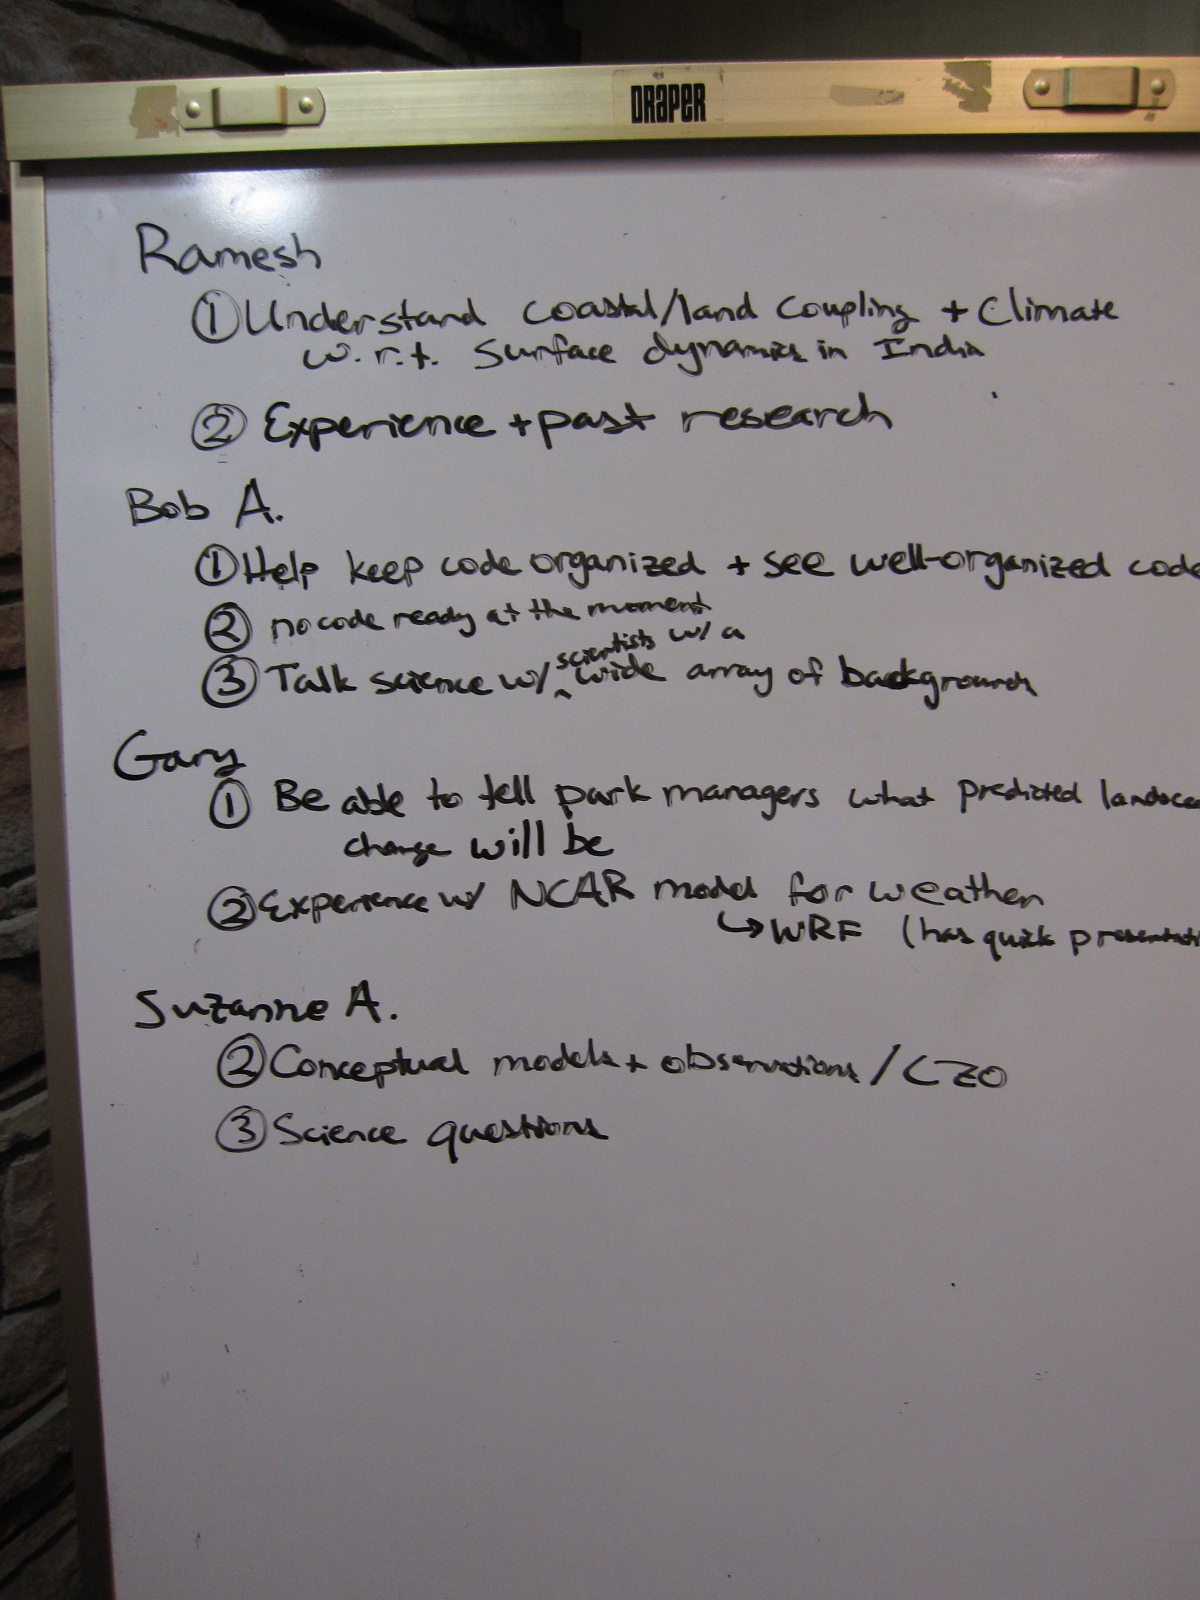 DRAPER
Ramesh
① Understand coastal/land coupling + Climate
w.r.t. surface dynamics in India
② Experience + past research
Bob A.
① Help keep code organized + see well-organized code
② no code ready at the moment
scientists w/ a
③ Talk science w/ ^ wide array of backgrounds
Gary
① Be able to tell park managers what predicted landsca
change will be
② Experience w/ NCAR model for weather
↳ WRF (has quick presentati
Suzanne A.
② Conceptual models + observations / CZO
③ Science questions